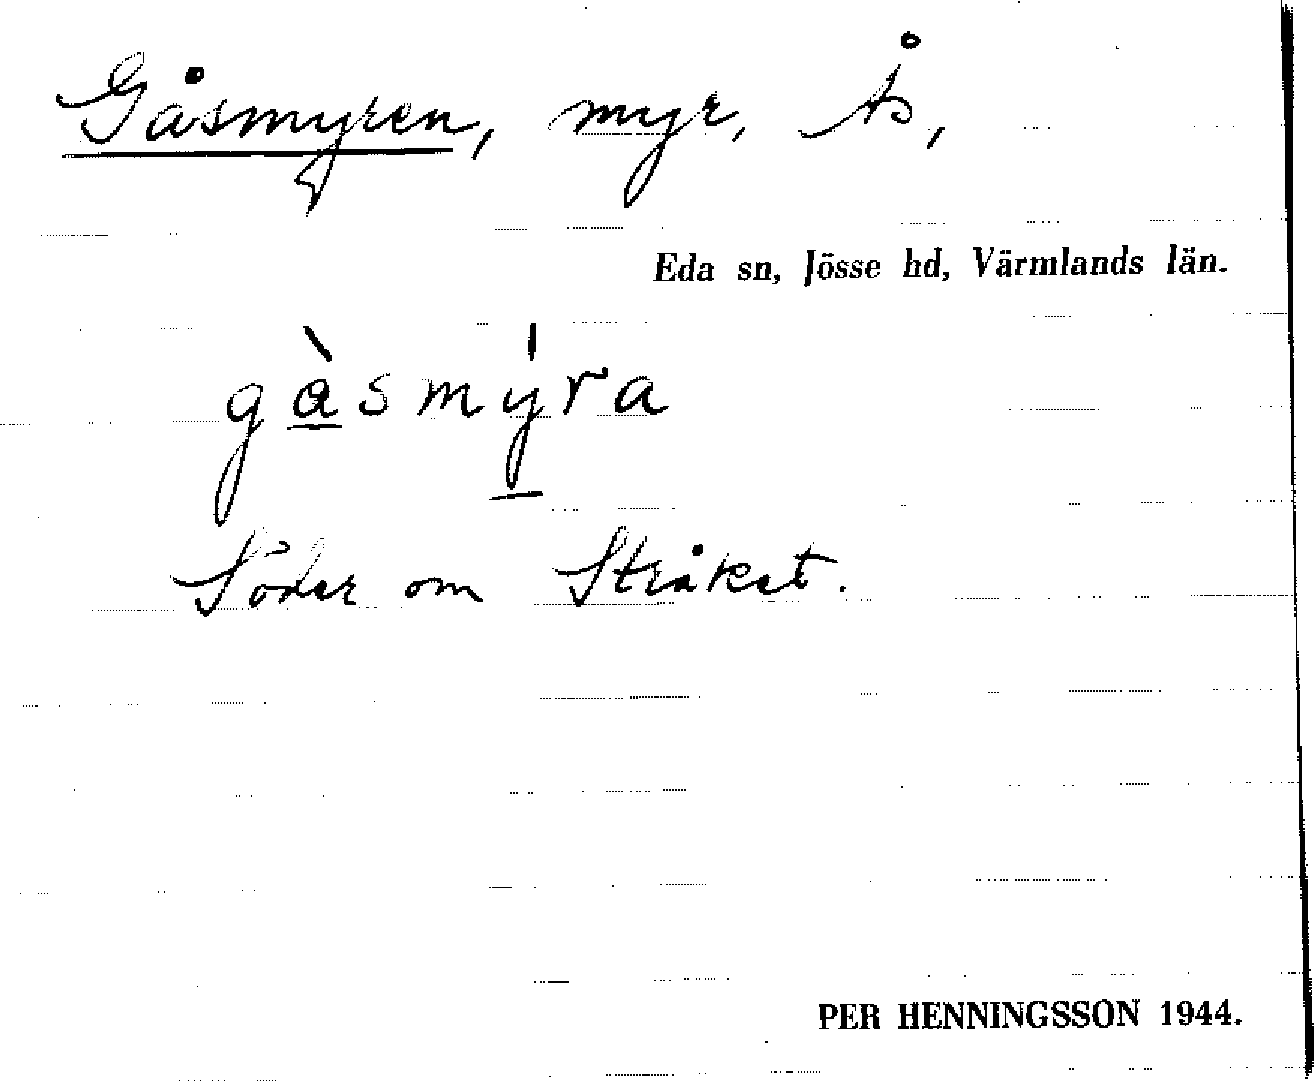 Gåsmyren, myr, Ås,
Eda sn, Jösse hd, Värmlands län.
gàsmýra
Söder om Stråket.
PER HENNINGSSON 1944.